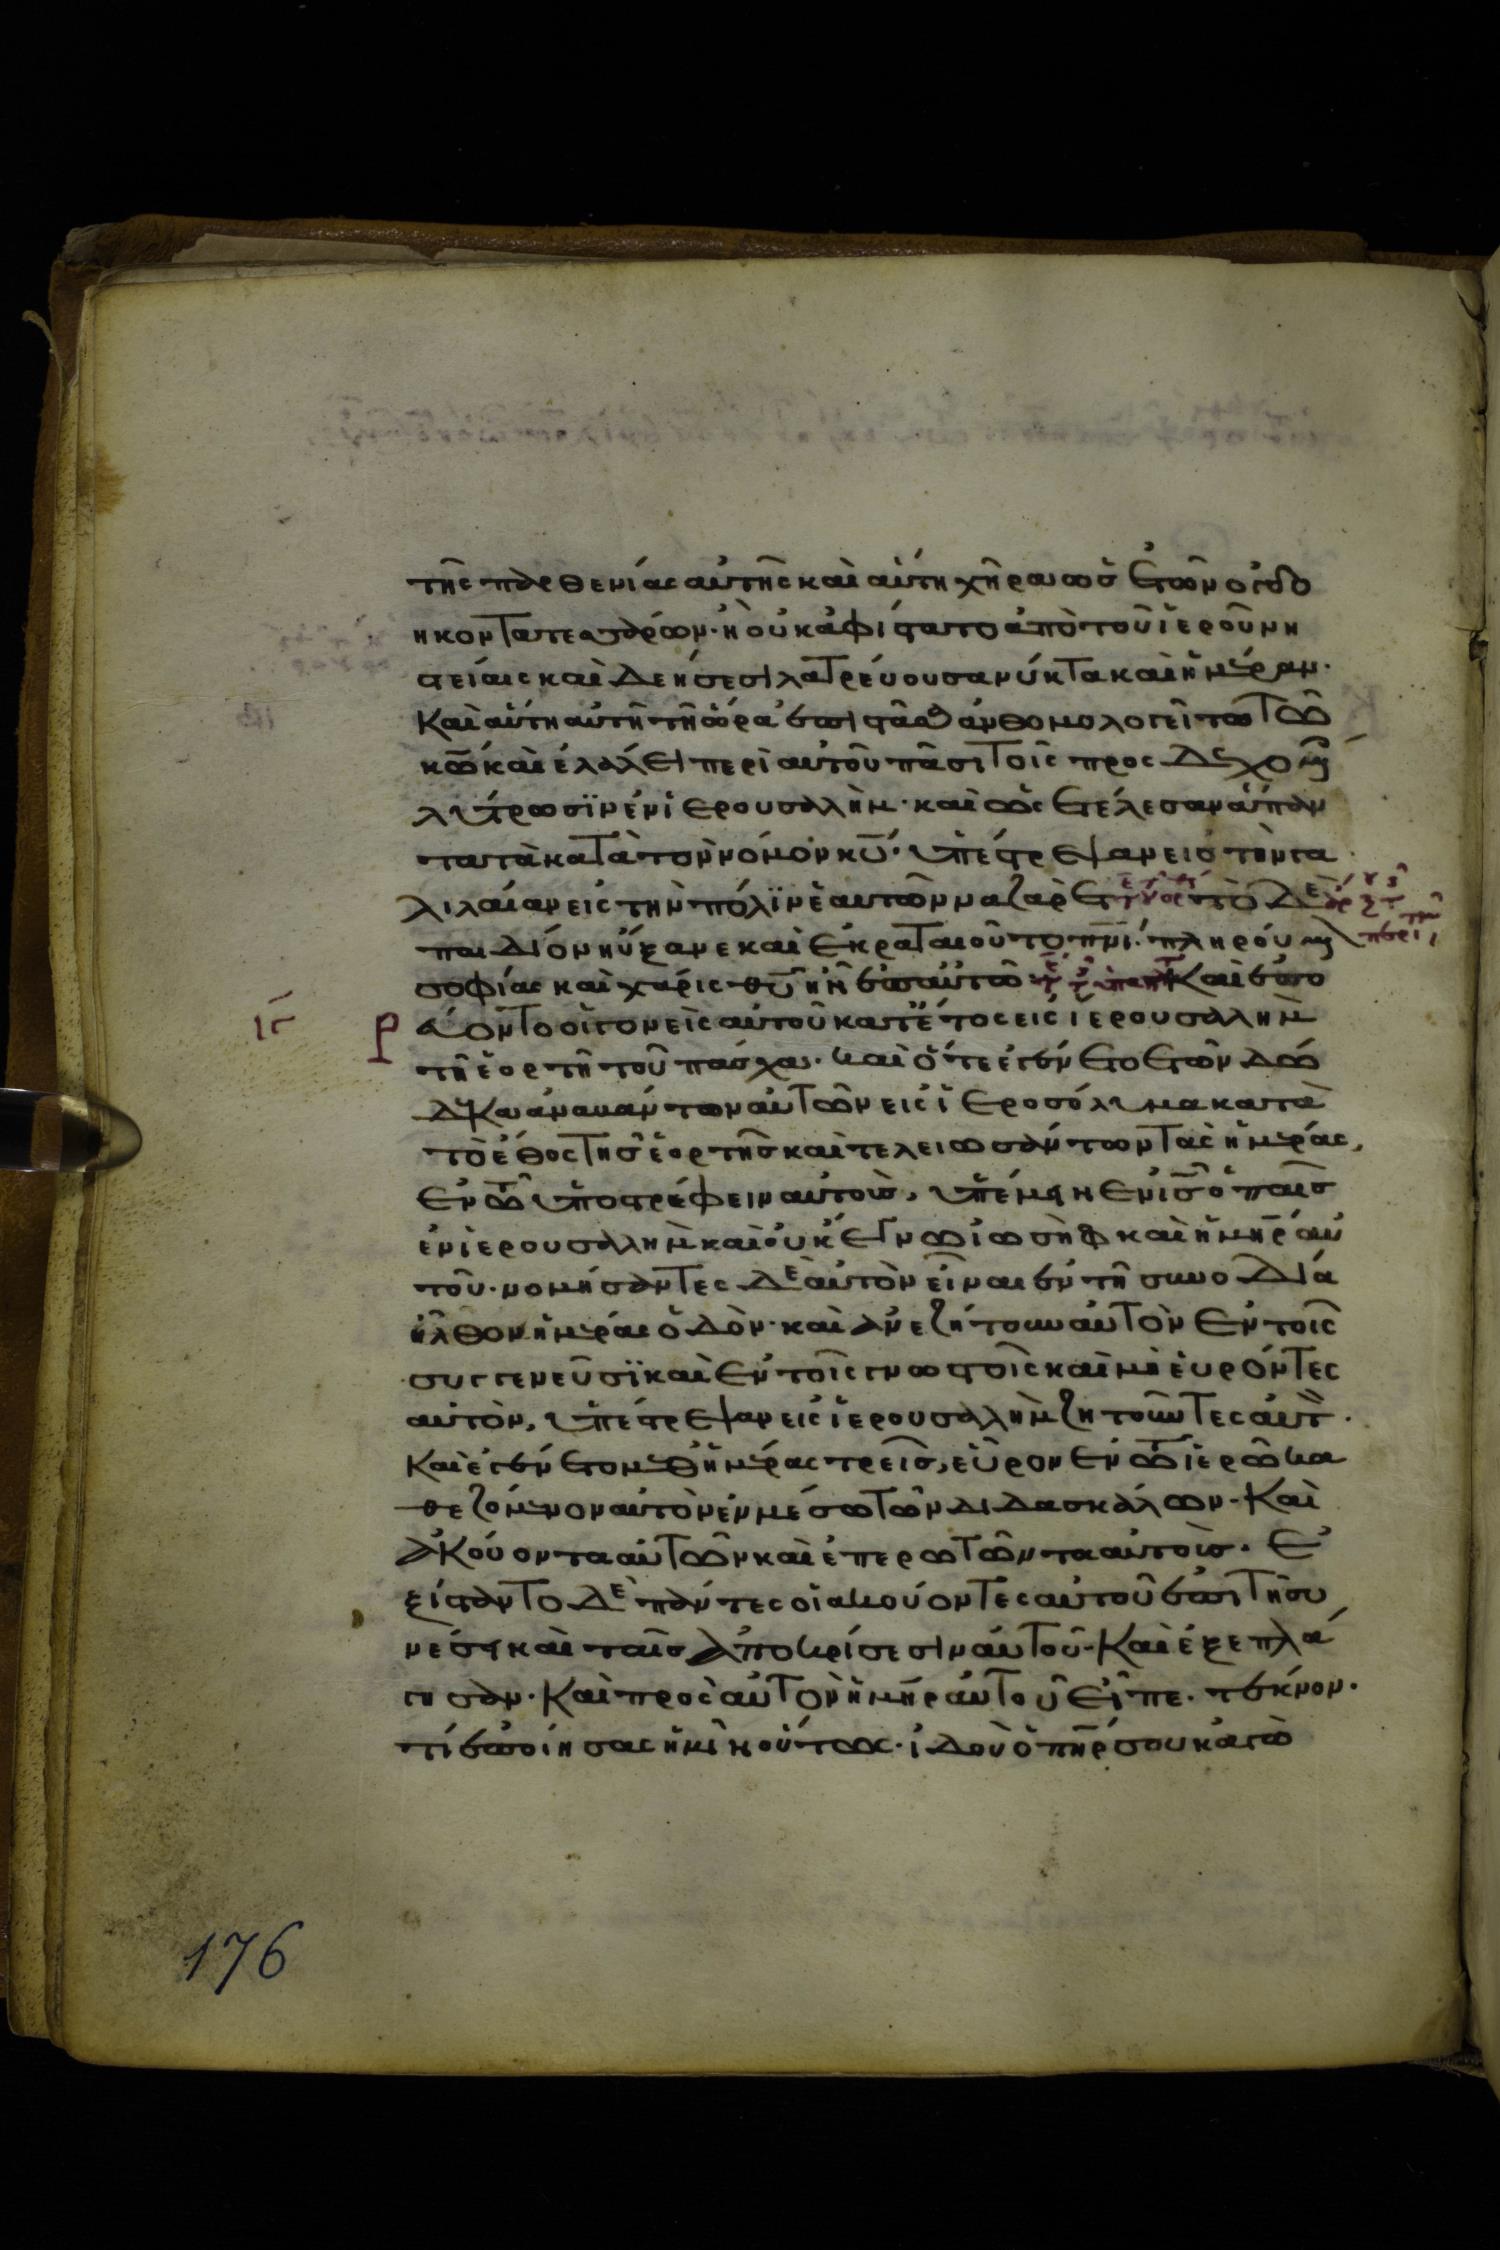 τῆς παρθενίας αὐτῆς καὶ αὐτη χήρα ὡς ἐτῶν ὀγδο
ηκοντατεσσάρων· ἣ οὐκ ἀφίστατο ἀπὸ τοῦ ἱεροῦ νη
στείαις καὶ δεήσεσι λατρεύουσα νύκτα καὶ ἡμέραν·
Καὶ αὕτη αὐτῆ τῆ ὥρα ἐπιστᾶσα ἀνθομολογεῖτο τῶ
κω καὶ ἐλάλει περὶ αὐτοῦ πᾶσι τοῖς προσδεχομ
λύτρωσϊν ἐν ἱερουσαλήμ· καὶ ὡς ἐτέλεσαν ἅπαν
τα τὰ κατὰ τὸν νόμον κυ· ὑπέστρεψαν εἰς τὴν γα
λιλαίαν εἰς τὴν πόλϊν ἑαυτῶν ναζαρέτ τὸ δὲ
παιδίον ηὔξανε καὶ ἐκραταιοῦτο πνι· πληρούμ
σοφίας καὶ χάρις θυ ἦν ἐπ αὐτῶ Καὶ ἐπο
ιϛ ρ ρεύοντο οἱ γονεῖς αὐτοῦ κατ ἔτος εἰς ἱερουσαλὴμ
τῆ ἑορτῆ τοῦ πάσχα· καὶ ὅτε ἐγένετο ἐτῶν δώ
δεκα ἀναβάντων αὐτῶν εἰς ἱεροσόλυμα κατὰ
τὸ ἔθος τῆς ἑορτῆς καὶ τελειωσάντων τὰς ἡμέρας,
ἐν τῶ ὑποστρέφειν αὐτοὺς, ὑπέμεινεν ις ὁ παῖς
ἐν ἱερουσαλὴμ καὶ οὐκ ἔγνω ἰωσὴφ καὶ ἡ μηρ αὐ
τοῦ· νομήσαντες δὲ αὐτὸν εἶναι ἐν τῆ συνοδία
ἦλθον ἡμέρας ὁδὸν· καὶ ἀνεζήτουν αὐτὸν ἐν τοῖς
συγγενεῦσϊ καὶ ἐν τοῖς γνωστοῖς καὶ μὴ εὑρόντες
αὐτὸν, ὑπέστρεψαν εἰς ἱερουσαλὴμ ζητοῦντες αὐτ·
Καὶ ἐγένετο μεθ ἡμέρας τρεῖς, εὗρον ἐν τῶ ἱερῶ κα
θεζόμενον αὐτὸν ἐν μέσω τῶν διδασκάλων· Καὶ
ἀκούοντα αὐτῶν καὶ ἐπερωτῶντα αὐτοὺς· Ἐ
ξίσταντο δὲ πάντες οἱ ἀκούοντες αὐτοῦ ἐπὶ τῆ συ
νέσει καὶ ταῖς ἀποκρίσεσιν αὐτοῦ· Καὶ ἐξεπλά
γησαν· Καὶ πρὸς αὐτὸν ἡ μηρ αὐτοῦ εἶπε· τέκνον·
τί ἐποίησας ἡμῖν οὕτως· ἰδοὺ ὁ πηρ σου κἀγὼ
176